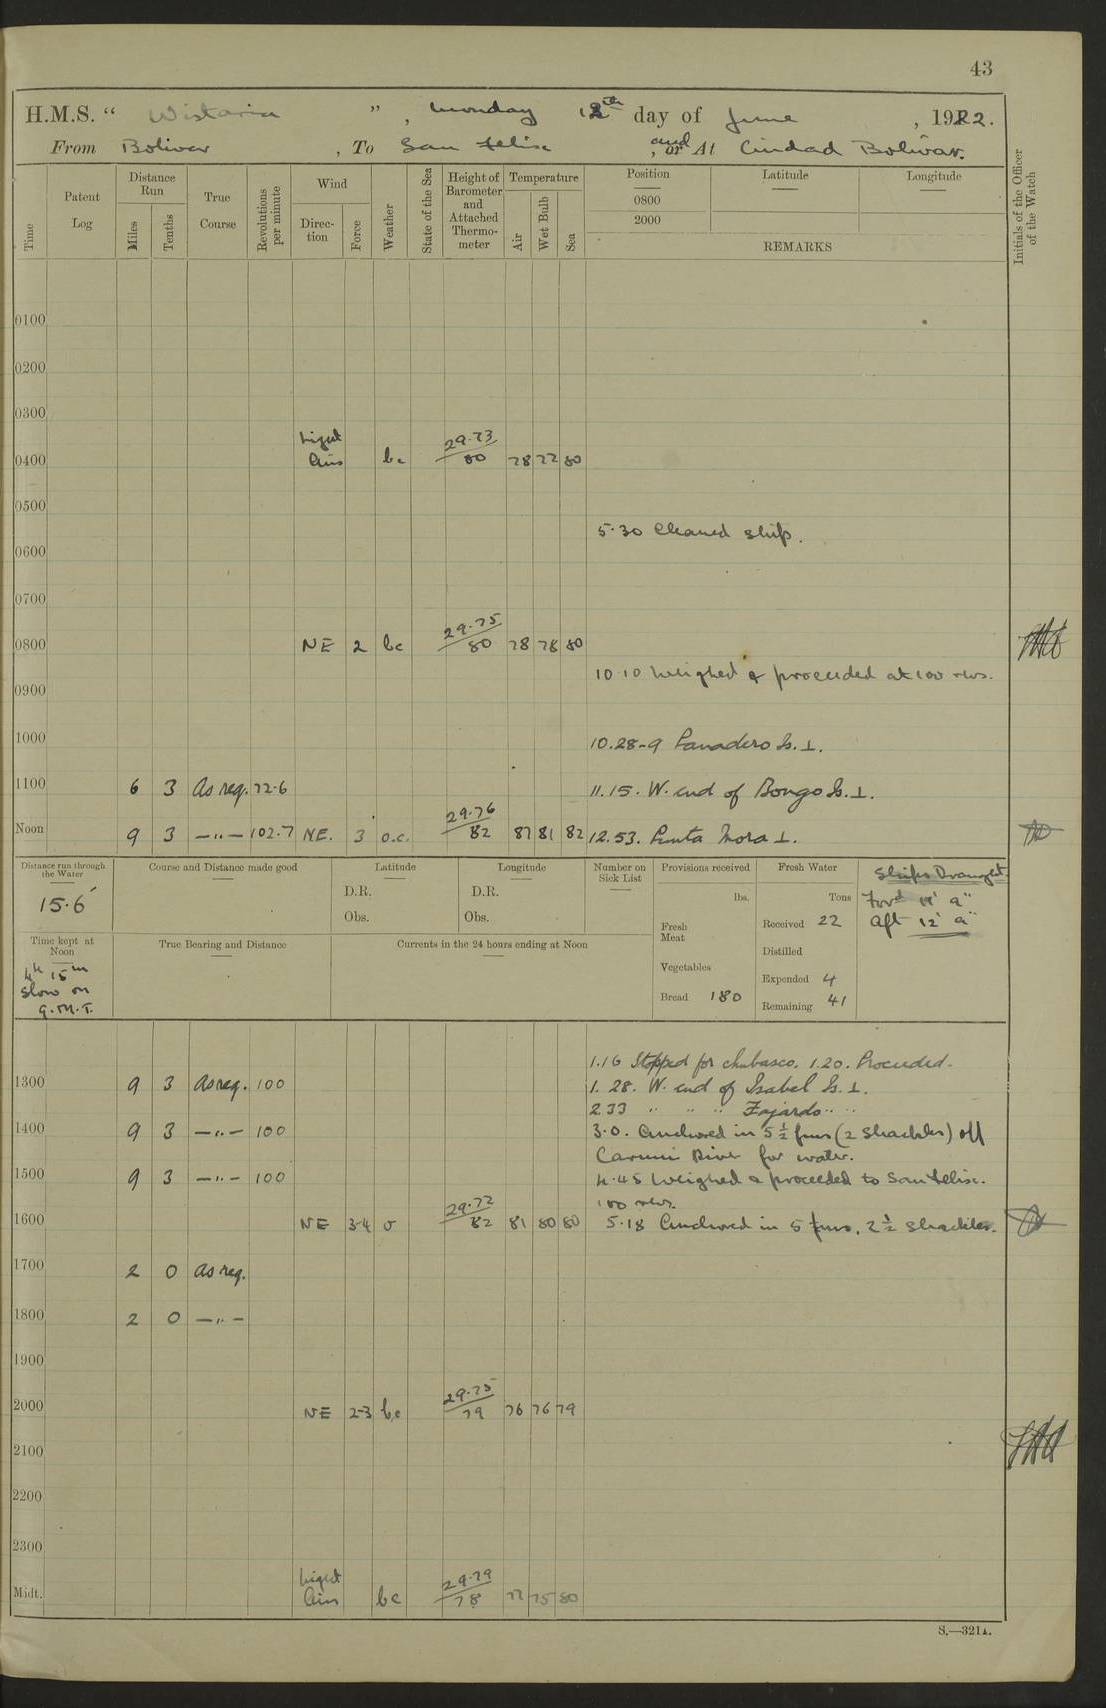 43
H.M.S. " Wistaria " , Monday 12th day of June , 1922.
From Bolivar , To San Felise , and or At Ciudad Bolivar.
Time
Patent Log
Distance Run
Miles
Tenths
True Course
Revolutions per minute
Wind
Direction
Force
Weather
State of the Sea
Height of Barometer and Attached Thermometer
Temperature
Air
Wet Bulb
Sea
Position
0800
2000
Latitude
Longitude
REMARKS
Initials of the Officer of the Watch
0100
0200
0300
0400 Light Airs bc 29.73 80 78 77 80
0500
5.30 Cleaned ship.
0600
0700
0800 NE 2 bc 29.75 80 78 78 80
10.10 Weighed & proceeded at 100 revs.
0900
1000 10.28-9 Panadero Is. ⊥.
1100 6 3 As req. 72.6 11.15. W. end of Bongo Is. ⊥.
Noon 9 3 —"— 102.7 NE. 3 o.c. 29.76 82 87 81 82 12.53. Punta Mora ⊥.
Distance run through the Water
15.6
Course and Distance made good
Latitude
D.R.
Obs.
Longitude
D.R.
Obs.
Number on Sick List
Provisions received
lbs.
Fresh Meat
Vegetables
Bread 180
Fresh Water
Tons
Received 22
Distilled
Expended 4
Remaining 41
Ships Draught.
Ford 11' 9"
Aft 12' 9"
Time kept at Noon
4h 15m
slow on
G.M.T.
True Bearing and Distance
Currents in the 24 hours ending at Noon
1.16 Stopped for chubasco. 1.20. Proceeded.
1300 9 3 As req. 100 1.28. W. end of Isabel Is. ⊥.
2.33 " " " Fajardo " "
1400 9 3 —"— 100 3.0. Anchored in 5½ fms (2 Shackles) off
Caroni River for water.
1500 9 3 —"— 100 4.45 Weighed & proceeded to San Felise.
100 revs.
1600 NE 3-4 o 29.72 82 81 80 80 5.18 Anchored in 5 fms, 2½ Shackles.
1700 2 0 As req.
1800 2 0 —"—
1900
2000 NE 2-3 b,c 29.75 79 76 76 79
2100
2200
2300
Midt. Light Airs bc 29.79 78 77 75 80
S.—321A.